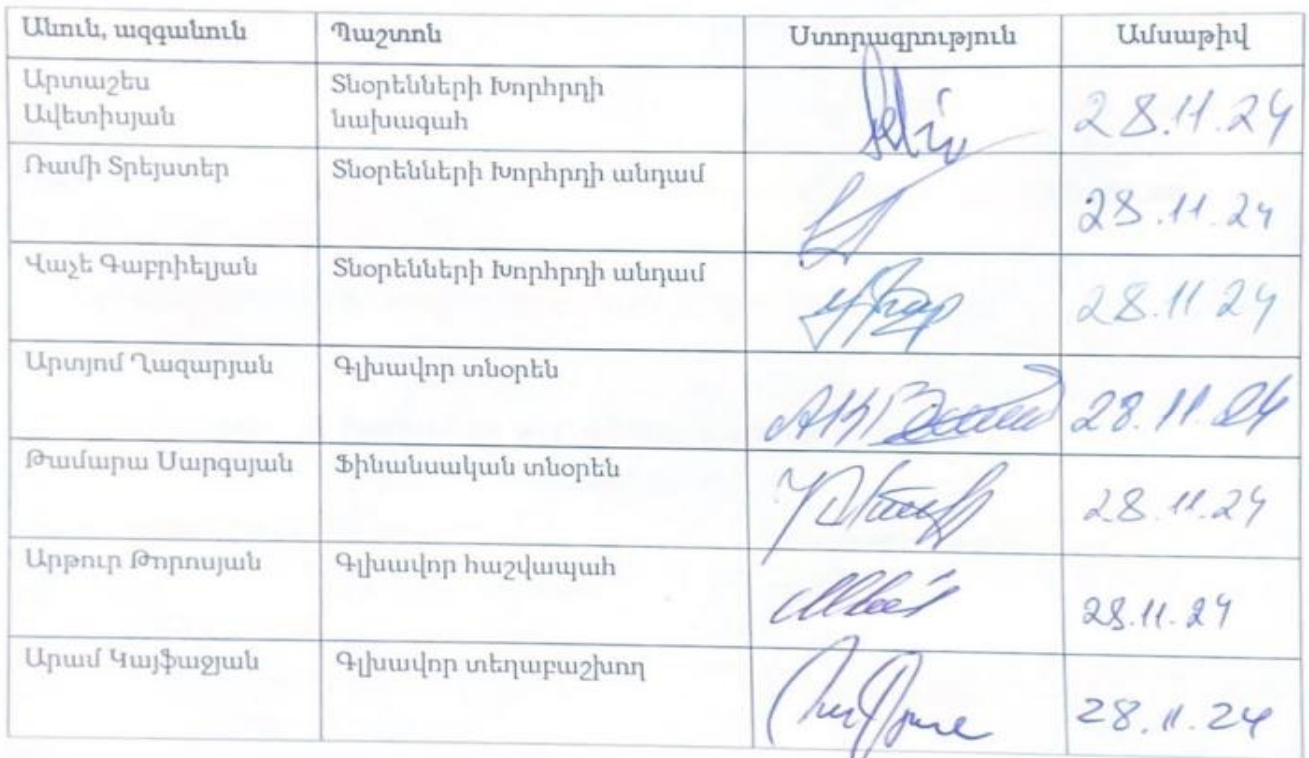 Անուն, ազգանուն Պաշտոն Ստորագրություն Ամսաթիվ
Արտաշես Տնօրենների Խորհրդի
Ավետիսյան նախագահ 28.11.24
Ռամի Տրեյստեր Տնօրենների Խորհրդի անդամ 28.11.24
Վաչե Գաբրիելյան Տնօրենների Խորհրդի անդամ 28.11.24
Արտյոմ Ղազարյան Գլխավոր տնօրեն 28.11.24
Թամարա Սարգսյան Ֆինանսական տնօրեն 28.11.24
Արթուր Թորոսյան Գլխավոր հաշվապահ 28.11.24
Արամ Կայֆաջյան Գլխավոր տեղաբաշխող 28.11.24